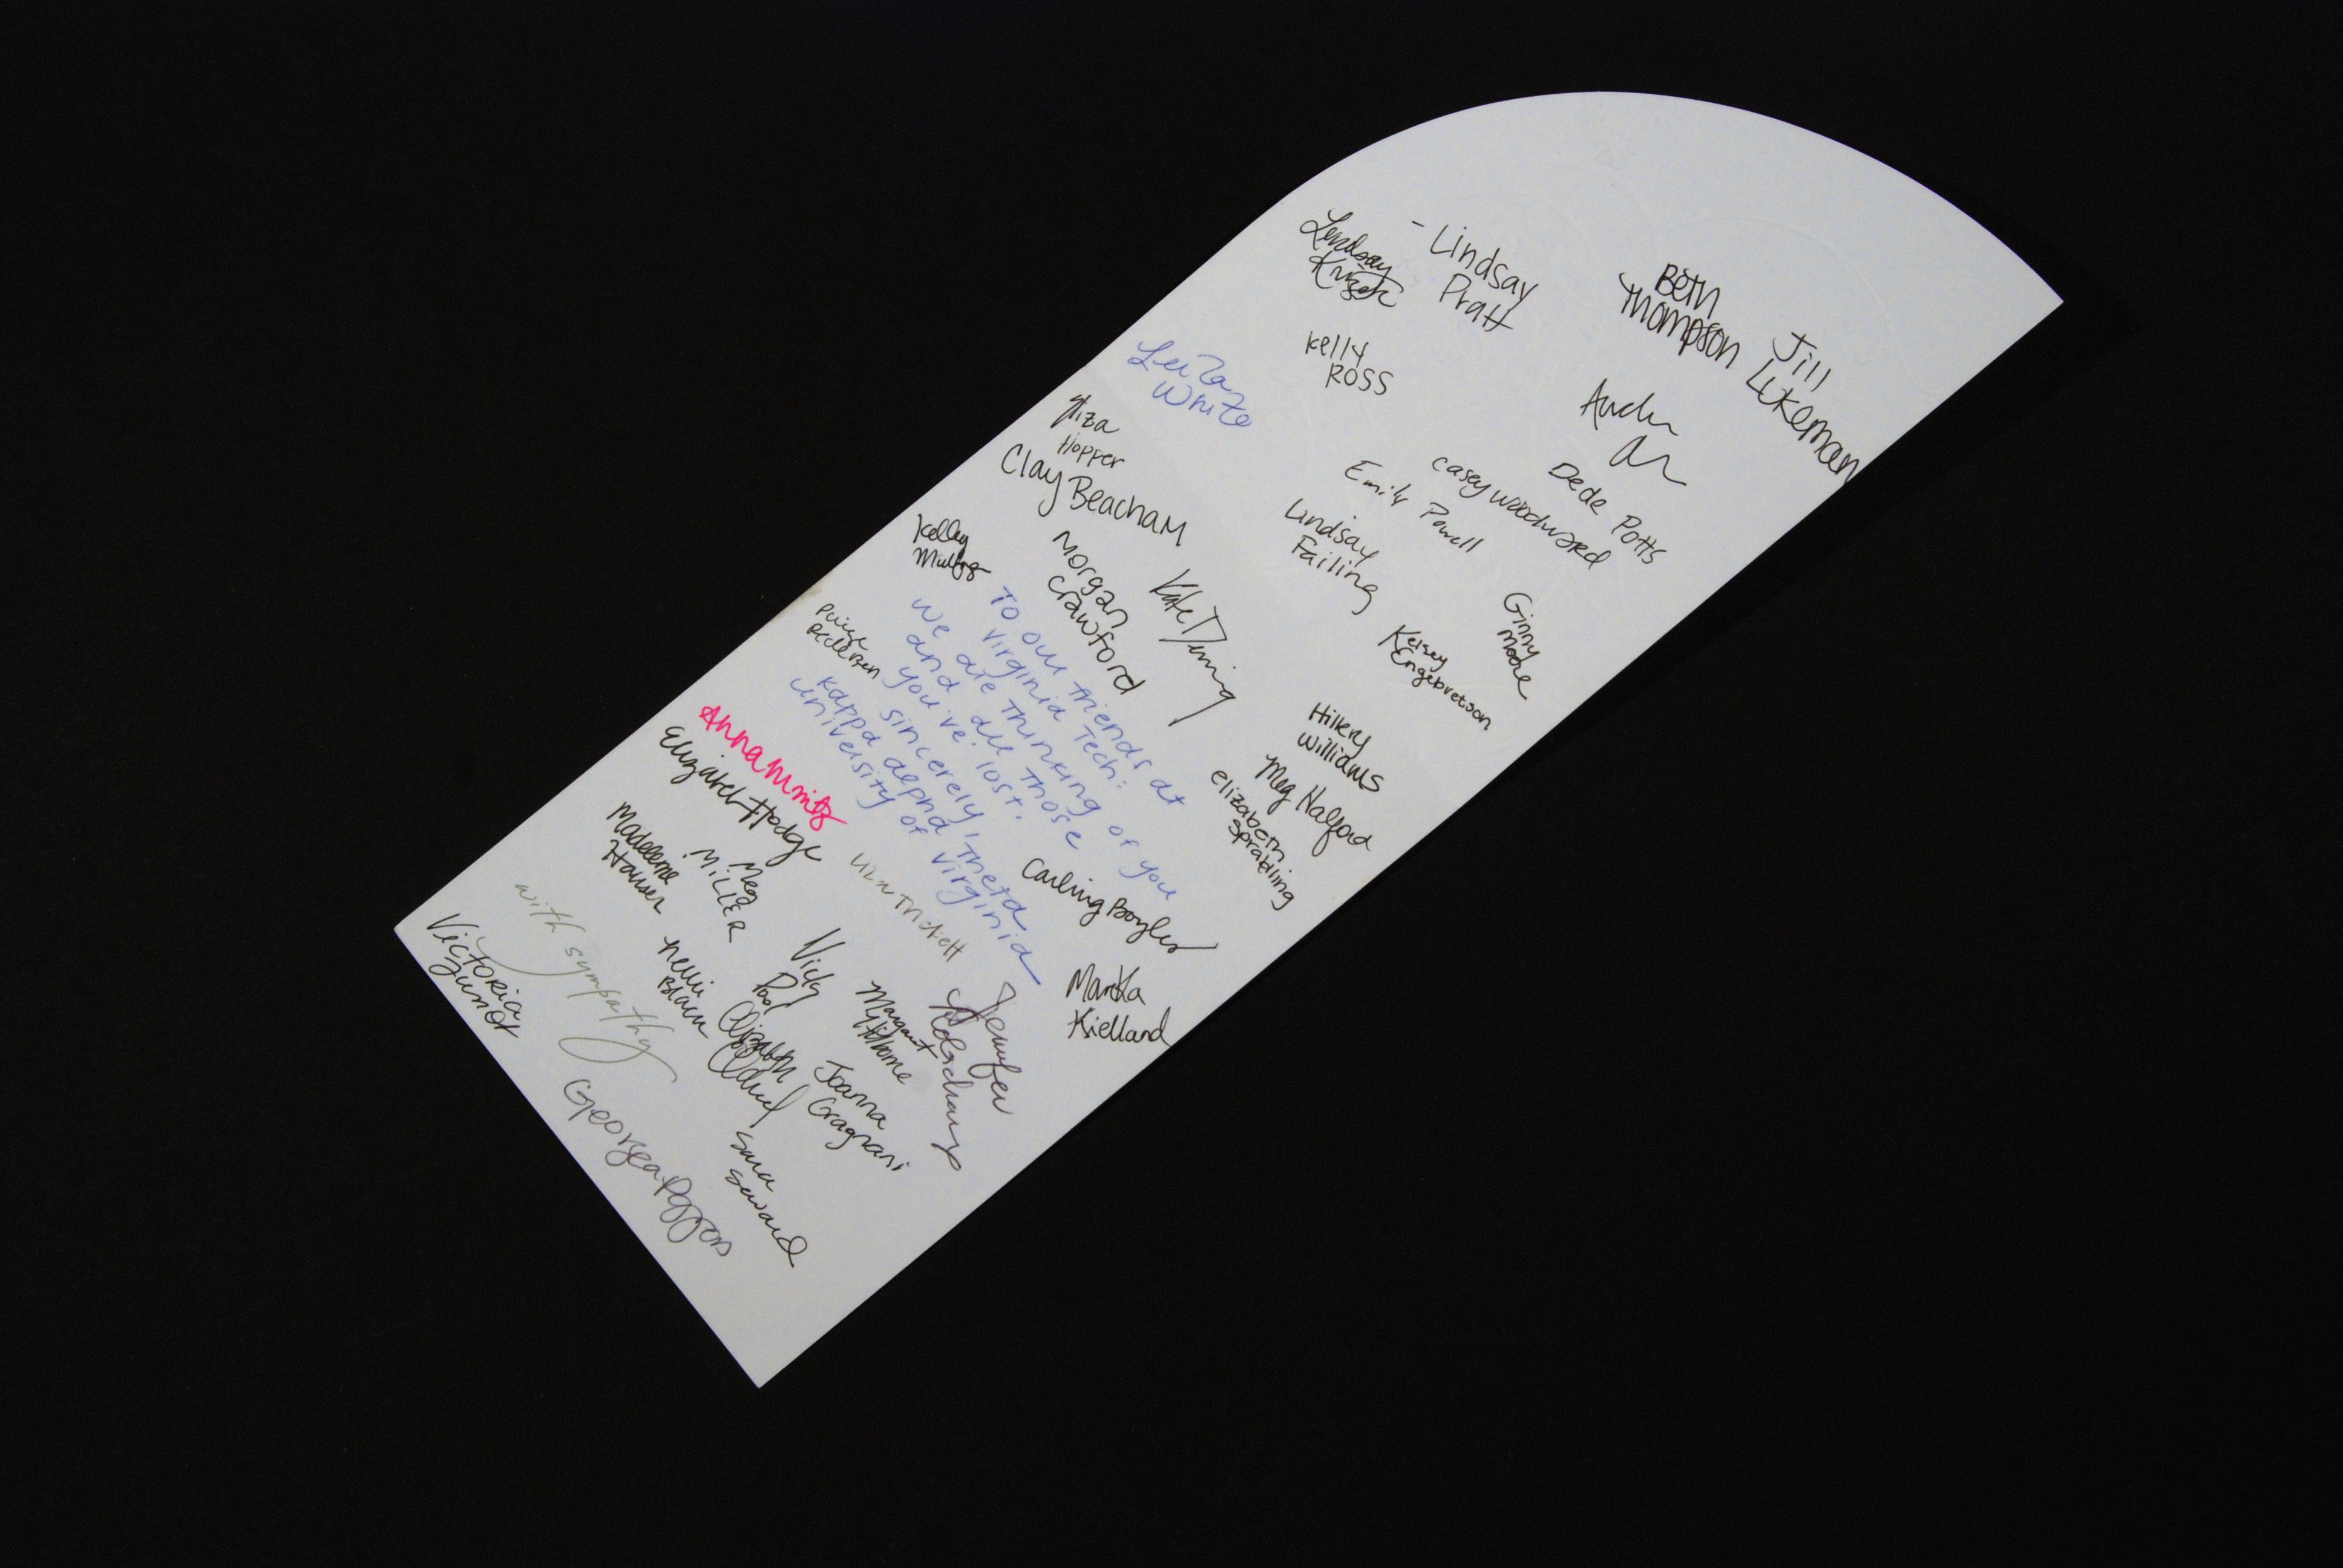 Lindsay
- Lindsay
Pratt
Beth
Thompson
Jill
Lukeman
Kelly
Ross
White
Eliza
Hopper
Clay Beacham
Dede Potts
Casey Woodward
Emily Powell
Lindsay
Failing
Kelley
Morgan
Crawford
Kate
Ginny
Moore
Kelsey
Engebretson
Paige
To our friends at
Virginia Tech:
We are thinking of you
and all those
you've lost.
Sincerely,
Kappa Alpha Theta
University of Virginia
Hilery
Williams
Meg Halford
Elizabeth
Spratling
Anna
Elizabeth Hodge
Madeleine
Hauser
Meg
Miller
Carling Boyles
Martha
Kielland
with sympathy
Victoria
Nelli
Vicky
Elizabeth
Margaret
Joanna
Gragnani
Jennifer
Sara
Seward
Georgea